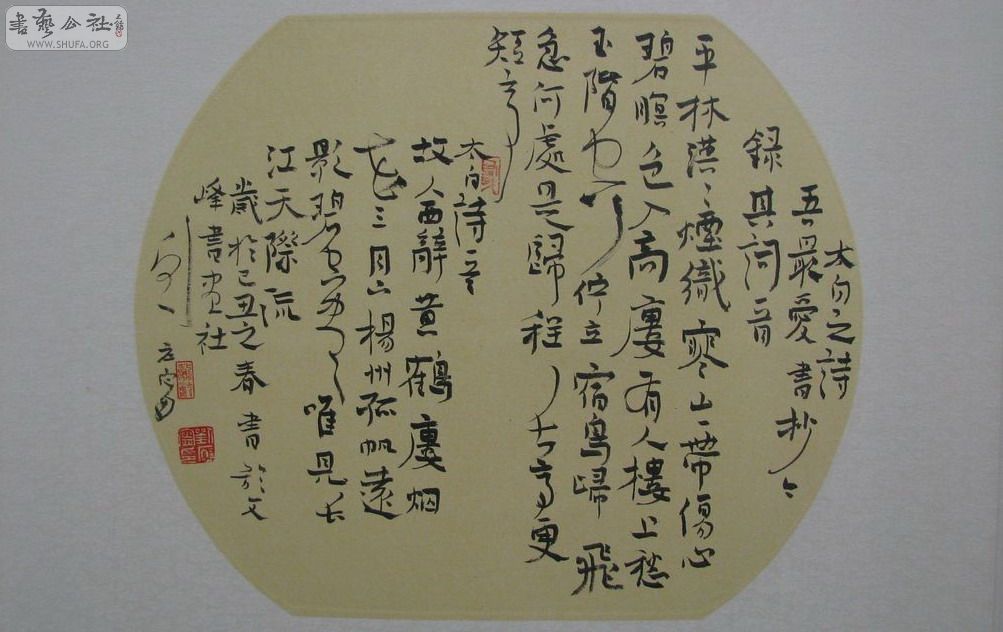 書藝公社
WWW.SHUFA.ORG
太白之詩
吾最愛書抄
錄其詞
平林漠々煙織寒山一帶傷心
碧暝色入高廔有人樓上愁
玉階空佇立宿鳥歸飛
急何處是歸程長亭更
短亭
太白詩一首
故人西辭黃鶴廔烟
花三月下楊州孤帆遠
影碧空盡唯見長
江天際流
歲於己丑之春書於文
峰書畫社